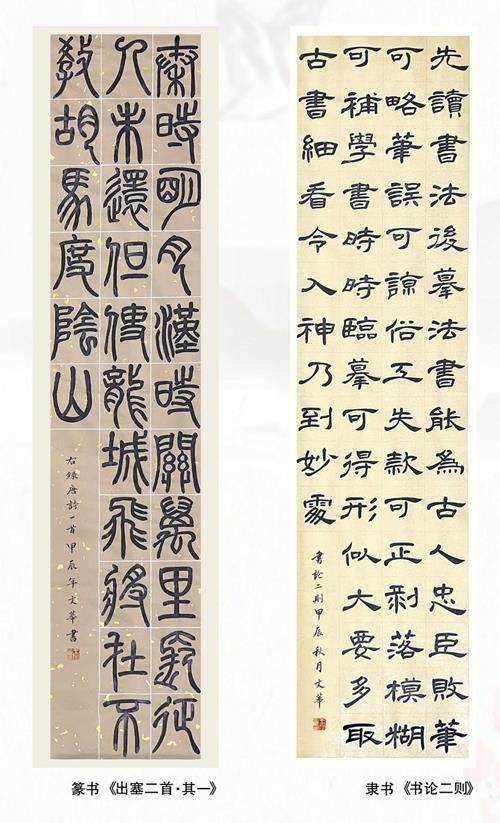 秦時明月漢時關萬里長征
人未還但使龍城飛將在不
教胡馬度陰山
右錄唐詩一首甲辰年文華書
篆书《出塞二首·其一》
先讀書法後摹法書能為古人忠臣敗筆
可略筆誤可諒俗工失款可正剝落模糊
可補學書時時臨摹可得形似大要多取
古書細看令入神乃到妙處
書論二則甲辰秋月文華
隶书《书论二则》